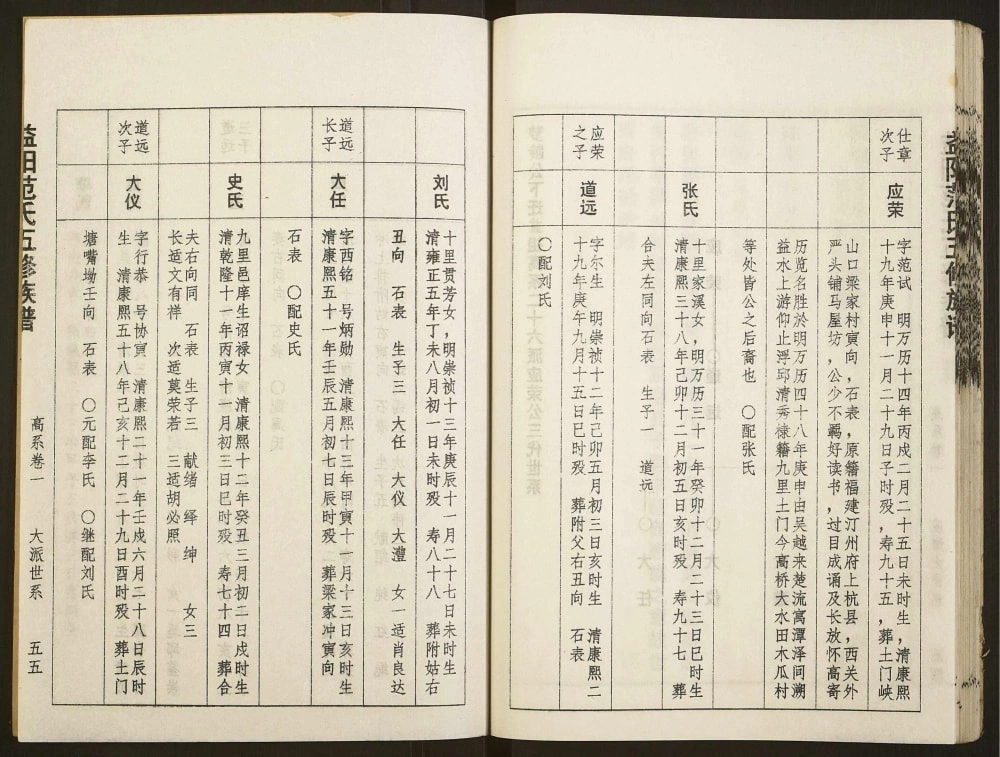 益阳范氏五修族谱
仕章
次子
应荣
字范试 明万历十四年丙戌二月二十五日未时生，清康熙
十九年庚申十一月二十九日子时殁，寿九十五，葬土门峡
山口梁家村寅向，石表，原籍福建汀州府上杭县，西关外
严头铺马屋坊，公少不羁好读书，过目成诵及长放怀高寄
历览名胜於明万历四十八年庚申由吴越来楚流寓潭泽间溯
益水上游仰止浮邱清秀棣籍九里土门今高桥大水田木瓜村
等处皆公之后裔也 〇配张氏
张氏
十里家溪女，明万历三十一年癸卯十二月二十三日巳时生
清康熙三十八年己卯十二月初五日亥时殁 寿九十七 葬
合夫左同向石表 生子一 道远
应荣
之子
道远
字尔生 明崇祯十二年己卯五月初三日亥时生 清康熙二
十九年庚午九月十五日巳时殁 葬附父右丑向 石表
〇配刘氏
刘氏
十里贯芳女，明崇祯十三年庚辰十一月二十七日未时生
清雍正五年丁未八月初一日未时殁 寿八十八 葬附姑右
丑向 石表 生子三 大任 大仪 大澧 女一适肖良达
道远
长子
大任
字西铭 号炳勋 清康熙十三年甲寅十一月十三日亥时生
清康熙五十一年壬辰五月初七日辰时殁 葬梁家冲寅向
石表 〇配史氏
史氏
九里邑庠生诏禄女 清康熙十二年癸丑三月初二日戌时生
清乾隆十一年丙寅十一月初三日巳时殁 寿七十四 葬合
夫右向同 石表 生子三 献绪 绎 绅 女三
长适文有祥 次适莫荣若 三适胡必照
道远
次子
大仪
字行恭 号协寅 清康熙二十一年壬戌六月二十八日辰时
生 清康熙五十八年己亥十二月二十九日酉时殁 葬土门
塘嘴坳壬向 石表 〇元配李氏 〇继配刘氏
益阳范氏五修族谱
高系卷一 大派世系 五五